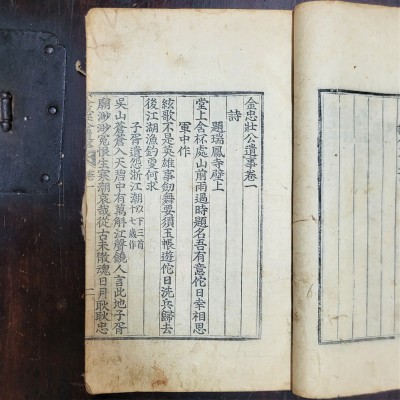 金忠壯公遺事卷一
詩
題瑞鳳寺壁上
堂上含杯處山前雨過時題名吾有意佗日幸相思
軍中作
絃歌不是英雄事劒舞要須玉帳遊佗日洗兵歸去
後江湖漁釣更何求
子胥遺怨浙江潮以下三首十七歲作
吳山蒼蒼入天碧中有萬斛江聲饒人言此地子胥
廟渺渺寃恨生寒潮哀哉從古未徵魂日月耿耿忠
卷一
二